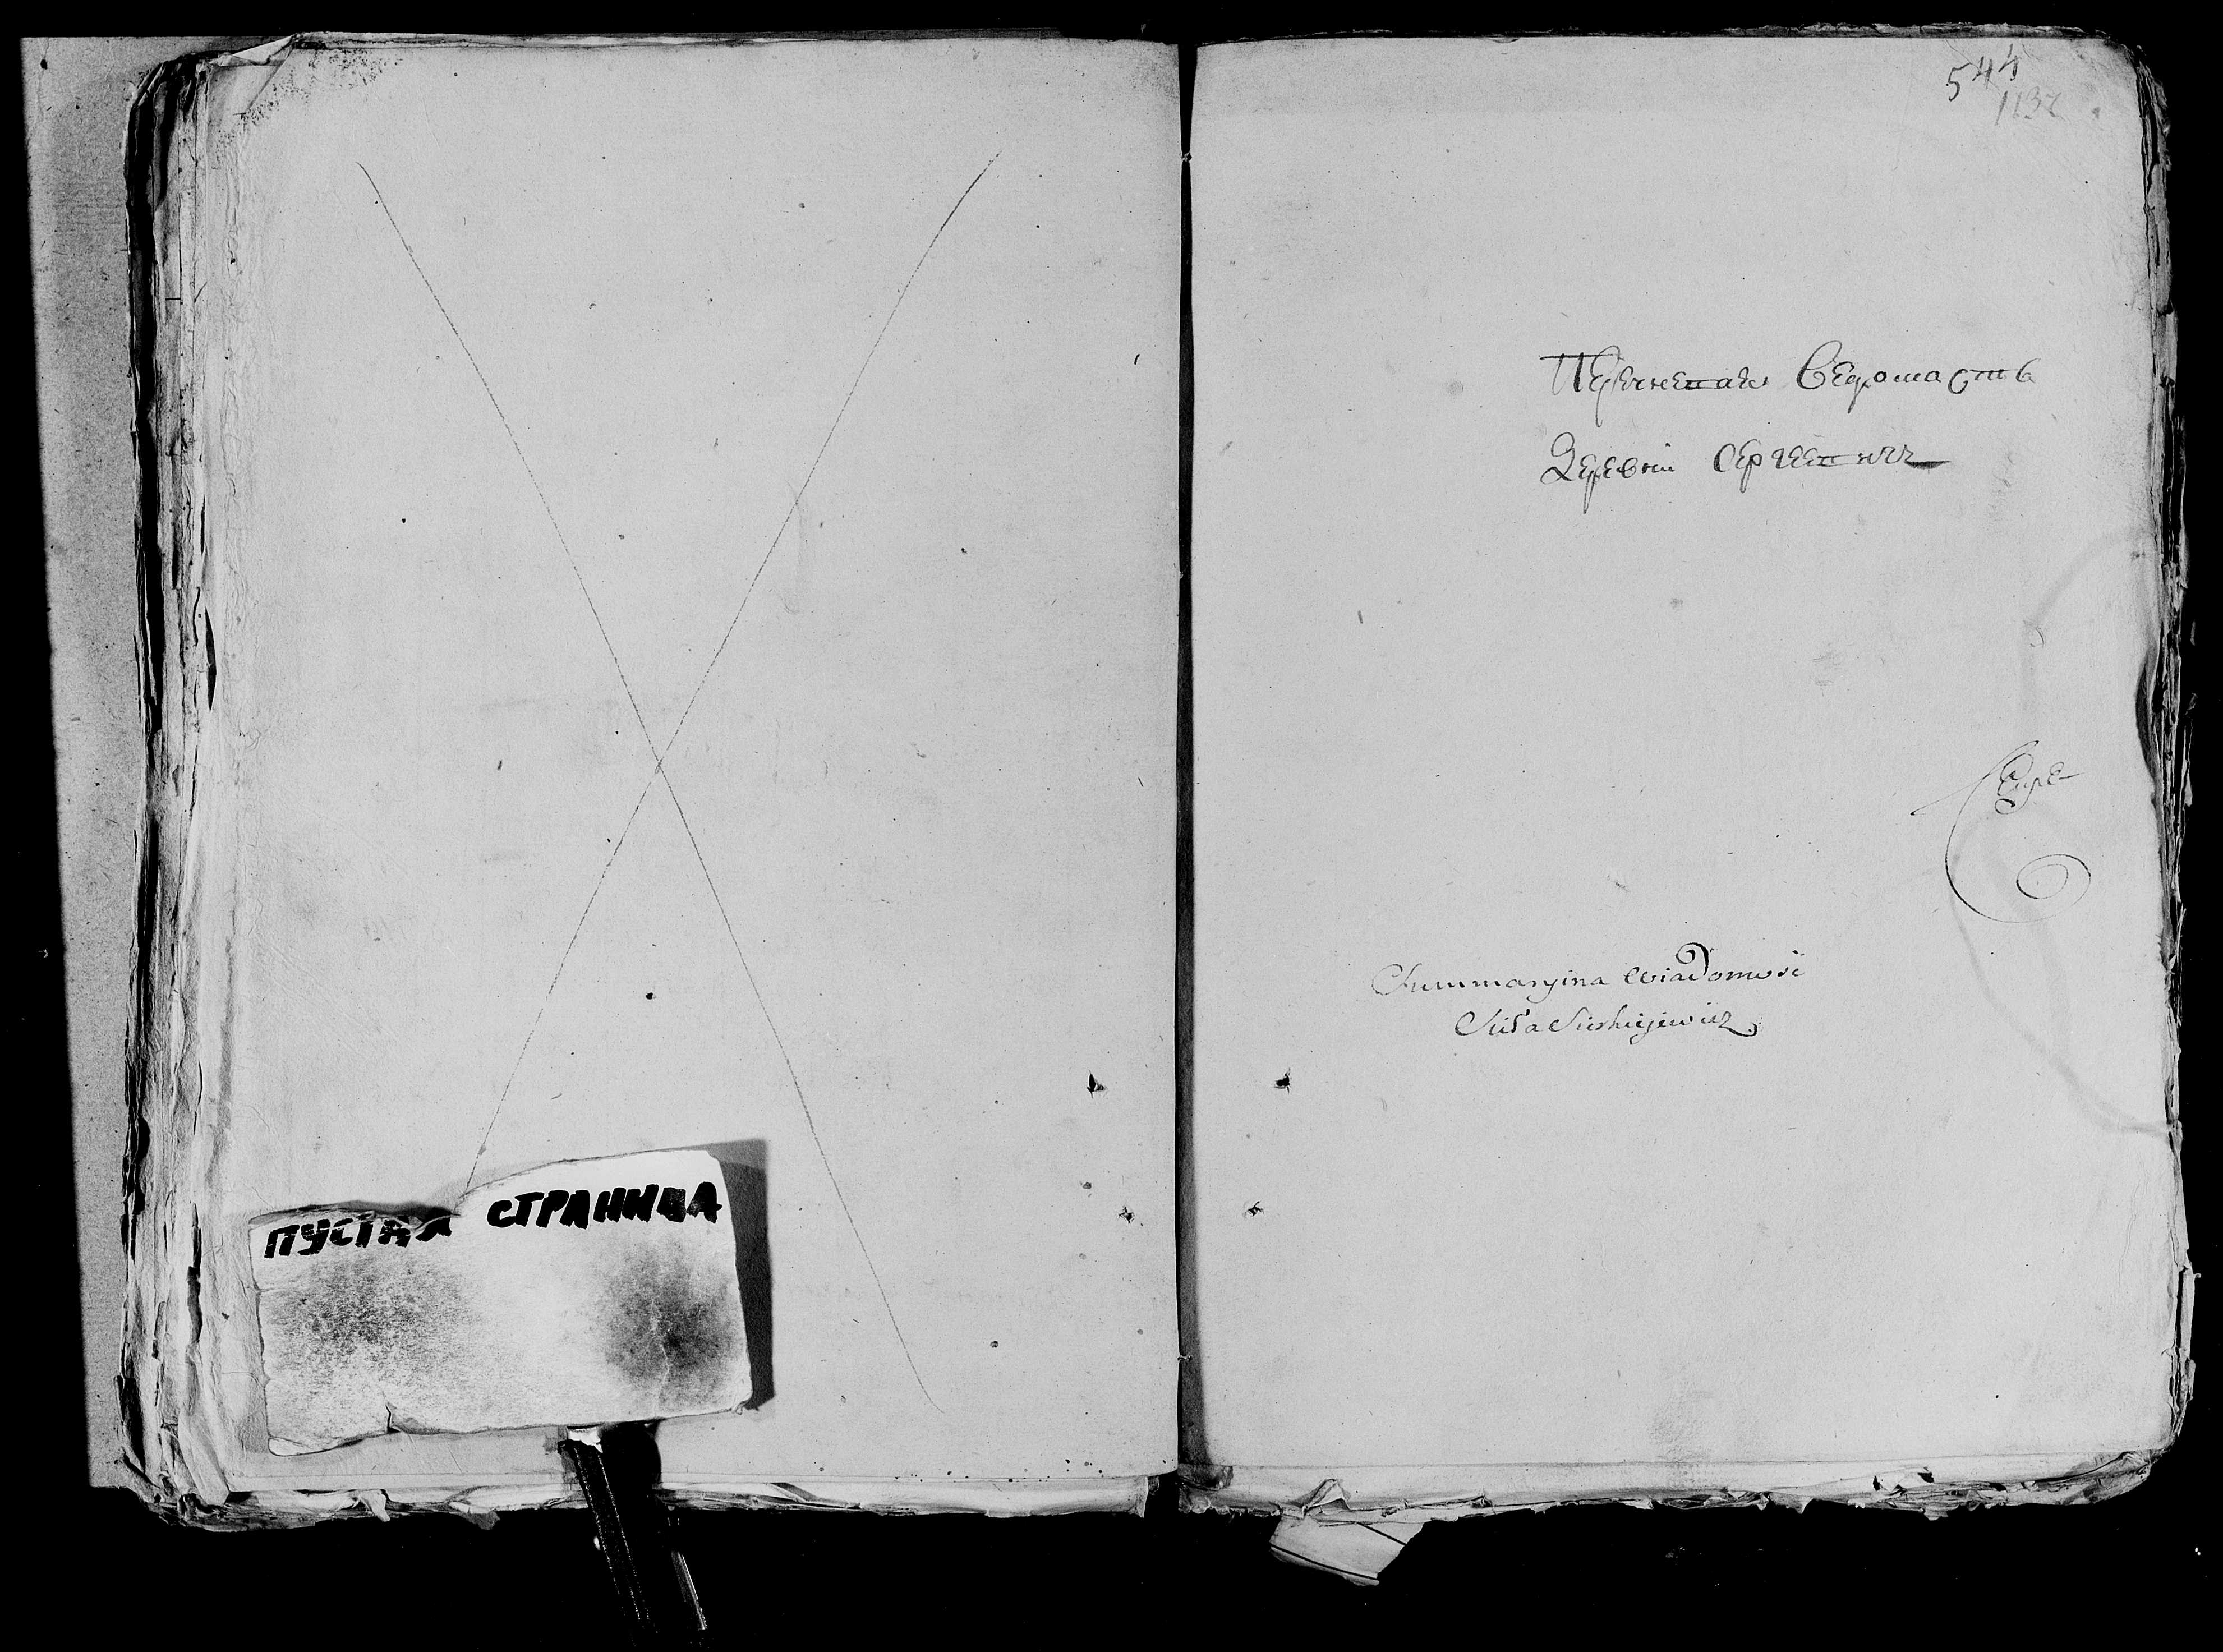 ПУСТАЯ СТРАНИЦА
544
1137
Перечневая Ведомасть
Деревни Сергеевич
Summaryina Wiadomosc
Siła Sierhiejewicz